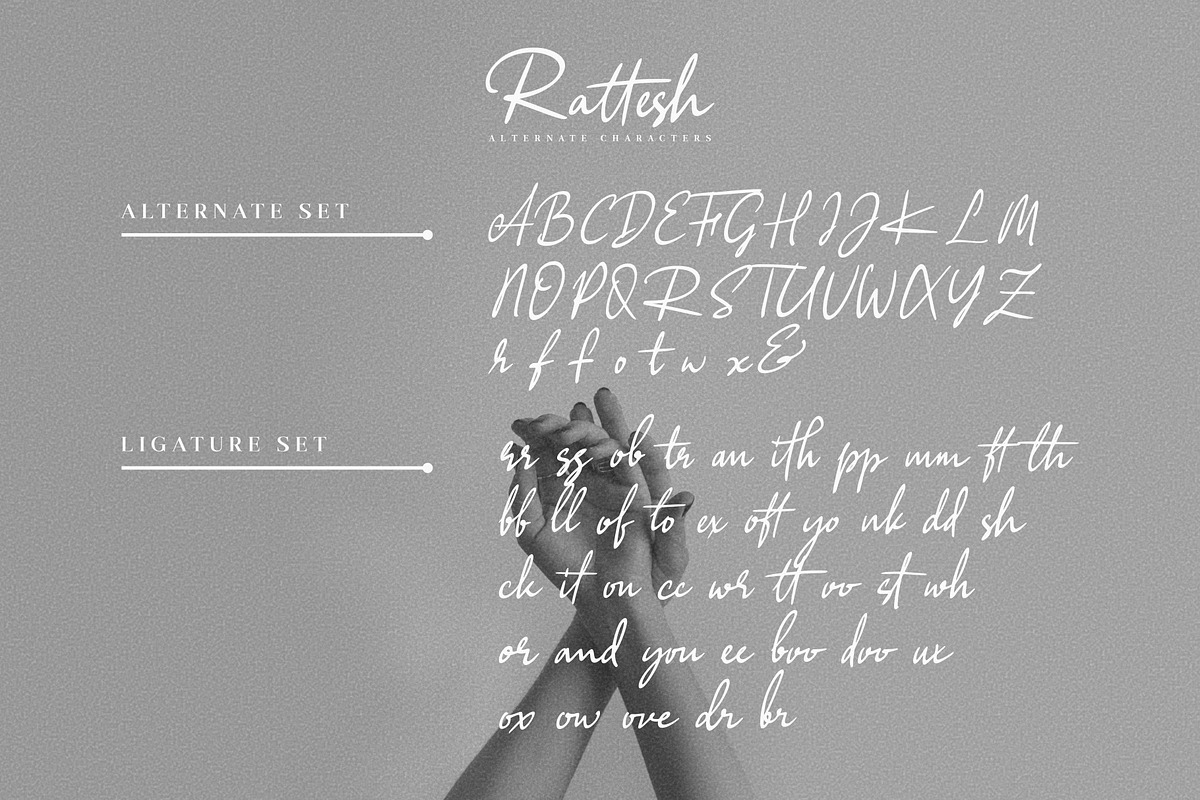 Rattesh
ALTERNATE CHARACTERS
ALTERNATE SET
A B C D E F G H I J K L M
N O P Q R S T U V W X Y Z
r f f o t w x &
LIGATURE SET
rr ss ob tr an ith pp mm ft th
bb ll of to ex oft yo nk dd sh
ck it on cc wr tt oo st wh
or and you ee boo doo ux
ox ow ove dr br